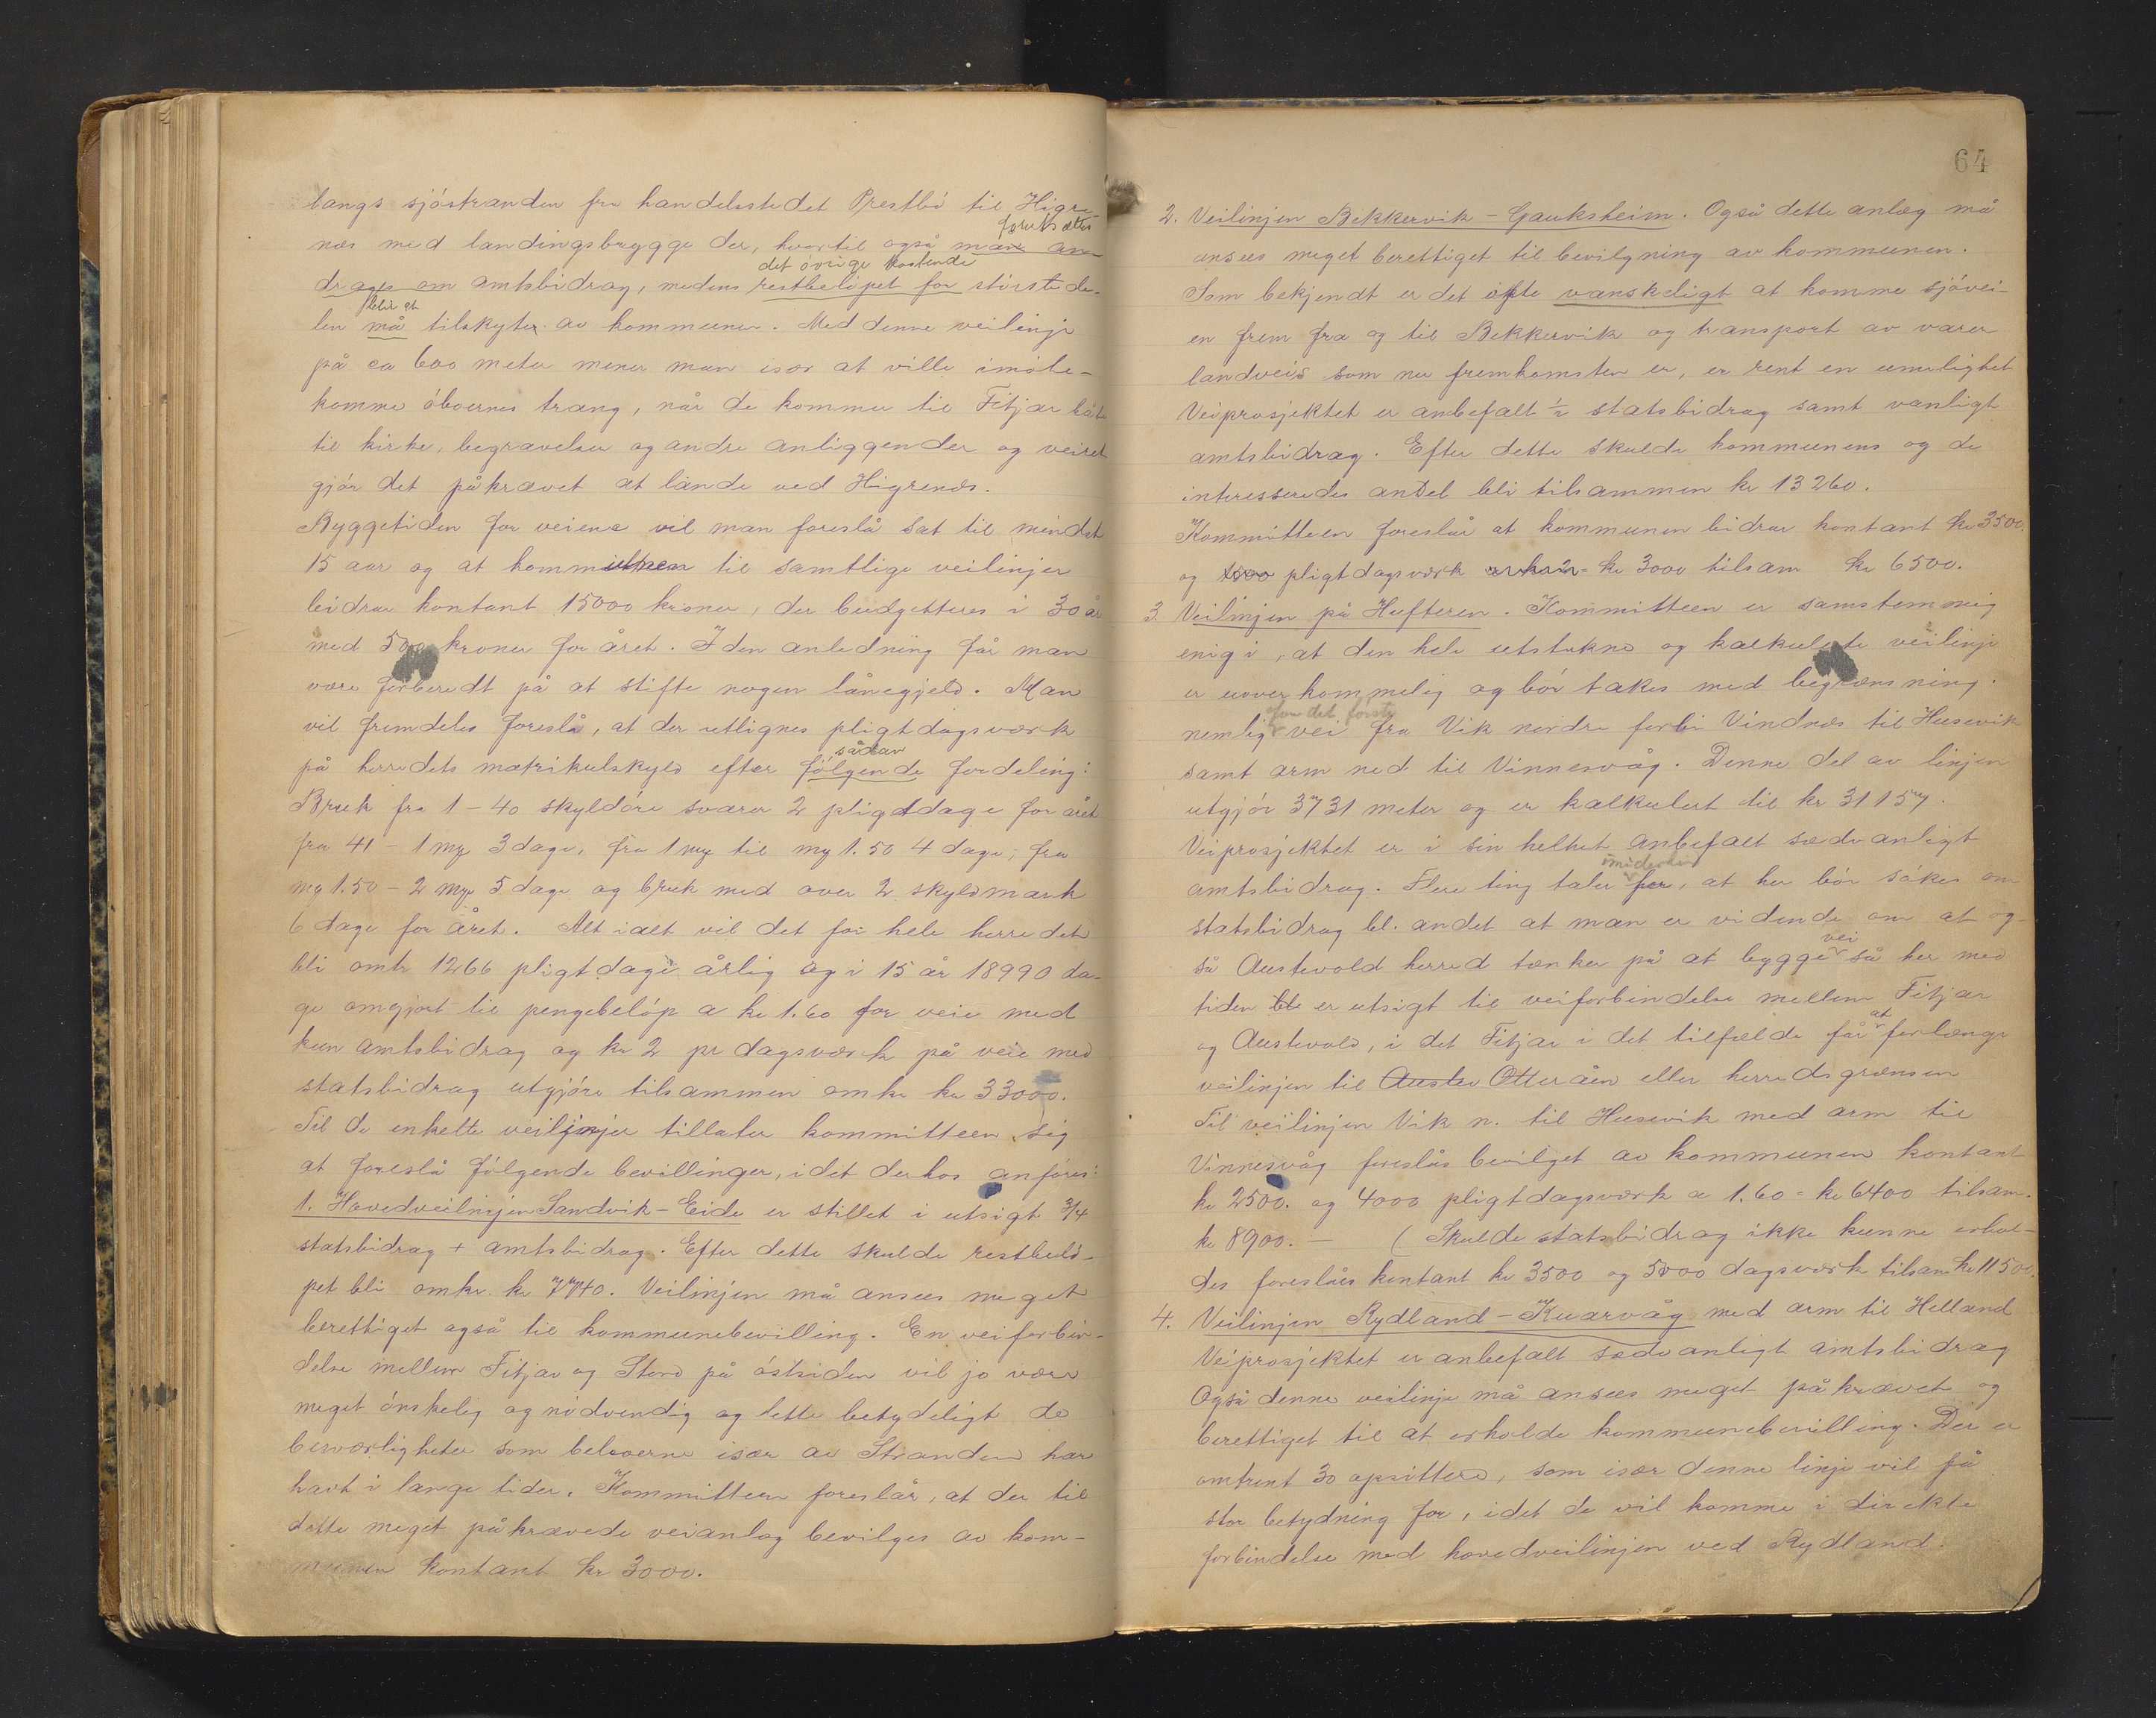 langs sjöstranden fra handelsstedet Prestbö til Higre-
forutsættes
næs med landingsbrygge der, hvortil også man an-
det övrige kostende
drages om amtsbidrag, medens restbelöpet for störstede-
blir at
len må tilskytes av kommunen. Med denne veilinje
på ca 600 meter mener man især at ville imöte-
komme öboernes trang, når de kommer til Fitjar båte
til kirke, begravelser og andre anliggender og veiret
gjör det påkrævet at lande ved Higrenæs.
Byggetiden for veiene vil man foreslå sat til mindst
15 aar og at kommunen til samtlige veilinjer
bidrar kontant 15000 kroner, der budgetteres i 30 år
med 500 kroner for året. I den anledning får man
være forberedt på at stifte nogen lånegjeld. Man
vil fremdeles foreslå, at der utlignes pligtdagsværk
sådan
på herredets matrikulskyld efter fölgende fordeling:
Bruk fra 1 - 40 skyldöre svarer 2 pligtdage for året
fra 41 - 1 mk 3 dage, fra 1 mk til mk 1.50 4 dage, fra
mk 1.50 - 2 mk 5 dage og bruk med over 2 skyldmark
6 dage for året. Alt ialt vil det for hele herredet
bli omtr 1266 pligtdage årlig og i 15 år 18990 da-
ge omgjort til pengebelöp a kr 1.60 for veie med
kun amtsbidrag og kr 2 pr dagsværk på veie med
statsbidrag utgjöre tilsammen omkr kr 33000.
Til de enkelte veilinjer tillater kommitteen sig
at foreslå fölgende bevillinger, idet derhos anföres:
1. Hovedveilinjen Sandvik - Eide er stillet i utsigt 3/4
statsbidrag + amtsbidrag. Efter dette skulde restbelö-
pet bli omkr. kr 7740. Veilinjen må ansees meget
berettiget også til kommunebevilling. En veiforbin-
delse mellem Fitjar og Stord på östsiden vil jo være
meget önskelig og nödvendig og lette betydeligt de
besværligheter som beboerne især av Stranden har
havt i lange tider. Kommitteen foreslår, at der til
dette meget påkrævede veianlæg bevilges av kom-
munen kontant kr 3000.
64
2. Veilinjen Bekkervik - Gauksheim. Også dette anlæg må
ansees meget berettiget til bevilgning av kommunen.
Som bekjendt er det ofte vanskeligt at komme sjövei-
en frem fra og til Bekkervik og transport av varer
landveis som nu fremkomsten er, er rent en umulighet
Veiprosjektet er anbefalt 1/2 statsbidrag samt vanligt
amtsbidrag. Efter dette skulde kommunens og de
interesseredes andel bli tilsammen kr 13260.
Kommitteen foreslår at kommunen bidrar kontant kr 3500
og 1500 pligtdagsværk = kr 3000 tilsam kr 6500.
3. Veilinjen på Hufteren. Kommitteen er samstemmig
enig i, at den hele utstukne og kalkulerte veilinje
er uoverkommelig og bör takes med begrænsning.
for det förste
nemlig vei fra Vik nordre forbi Vindnes til Husevik
samt arm ned til Vinnesvåg. Denne del av linjen
utgjör 3731 meter og er kalkulert til kr 31157.
Veiprosjektet er i sin helhet anbefalt sædvanligt
imidlertid
amtsbidrag. Flere ting taler for, at her bör sökes om
statsbidrag bl. andet at man er vidende om at og-
vei
så Austevold herred tænker på at bygge så her med
tiden ble er utsigt til veiforbindelse mellem Fitjar
at
og Austevold, i det Fitjar i det tilfælde får forlænge
veilinjen til Auster Otteråen eller herredsgrænsen
Til veilinjen Vik n. til Husevik med arm til
Vinnesvåg foreslås bevilget av kommunen kontant
kr 2500. og 4000 pligtdagsværk a 1.60 = kr 6400 tilsam.
kr 8900. - ( Skulde statsbidrag ikke kunne erhol-
des foreslåes kontant kr 3500 og 5000 dagsværk tilsam kr 11500.
4. Veilinjen Rydland - Kuarvåg med arm til Helland
Veiprosjektet er anbefalt sædvanligt amtsbidrag
Også denne veilinje må ansees meget påkrævet og
berettiget til at erholde kommunebevilling. Der er
omtrent 30 opsittere, som især denne linje vil få
stor betydning for, idet de vil komme i direkte
forbindelse med hovedveilinjen ved Rydland.